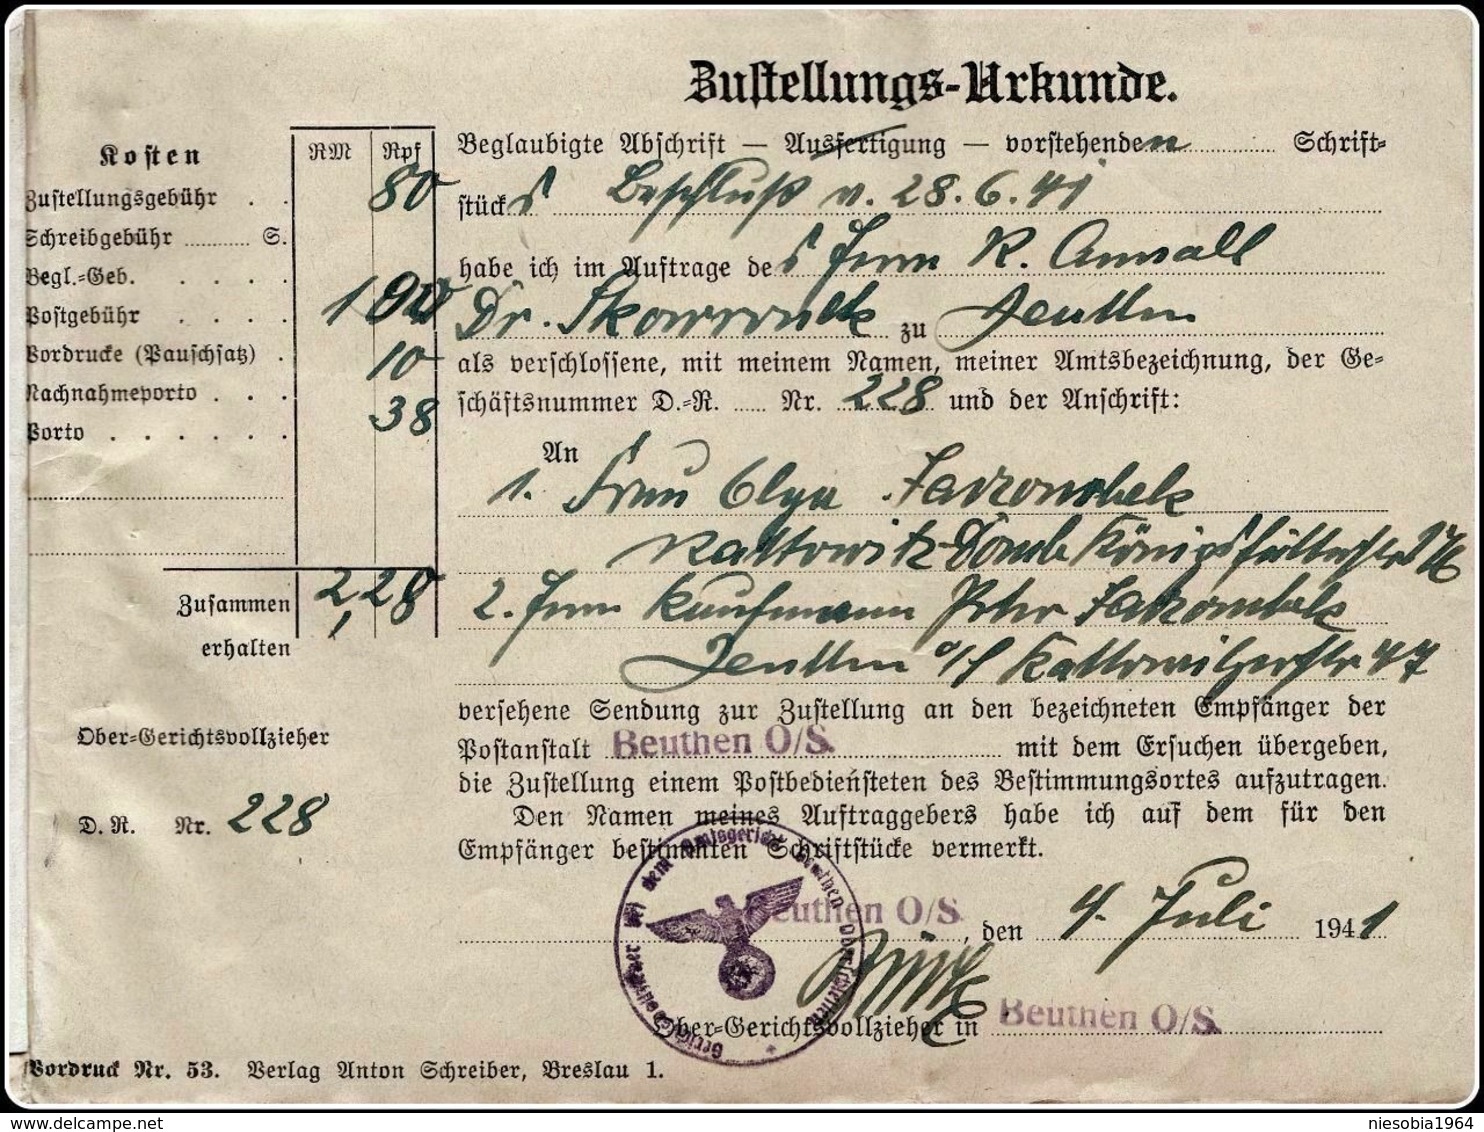 Zustellungs-Urkunde.
Kosten
RM Rpf
Zustellungsgebühr . . 80
Schreibgebühr ......... S.
Begl.-Geb. . . . .
Postgebühr . . . . 1
Vordrucke (Pauschsatz) . 10
Nachnahmeporto . . .
Porto . . . . . . 38
Zusammen 2 28
erhalten
Ober-Gerichtsvollzieher
D. R. Nr. 228
Beglaubigte Abschrift — Ausfertigung — vorstehenden Schrift-
stücks Beschluß v. 28.6.41
habe ich im Auftrage des Herrn R. Anwalt
Dr. zu Beuthen
als verschlossene, mit meinem Namen, meiner Amtsbezeichnung, der Ge-
schäftsnummer D.-R. ..... Nr. 228 und der Anschrift:
An
1. Frau Olga
Kattowitz-Domb Königshütterstr.
2. Herrn Kaufmann
Beuthen o/S Kattowitzerstr 47
versehene Sendung zur Zustellung an den bezeichneten Empfänger der
Postanstalt Beuthen O/S. mit dem Ersuchen übergeben,
die Zustellung einem Postbediensteten des Bestimmungsortes aufzutragen.
Den Namen meines Auftraggebers habe ich auf dem für den
Empfänger bestimmten Schriftstücke vermerkt.
Beuthen O/S. , den 4. Juli 1941
Ober-Gerichtsvollzieher in Beuthen O/S.
Gerichtsvollzieher bei dem Amtsgericht Beuthen Oberschlesien
Vordruck Nr. 53. Verlag Anton Schreiber, Breslau 1.
niesobia1964